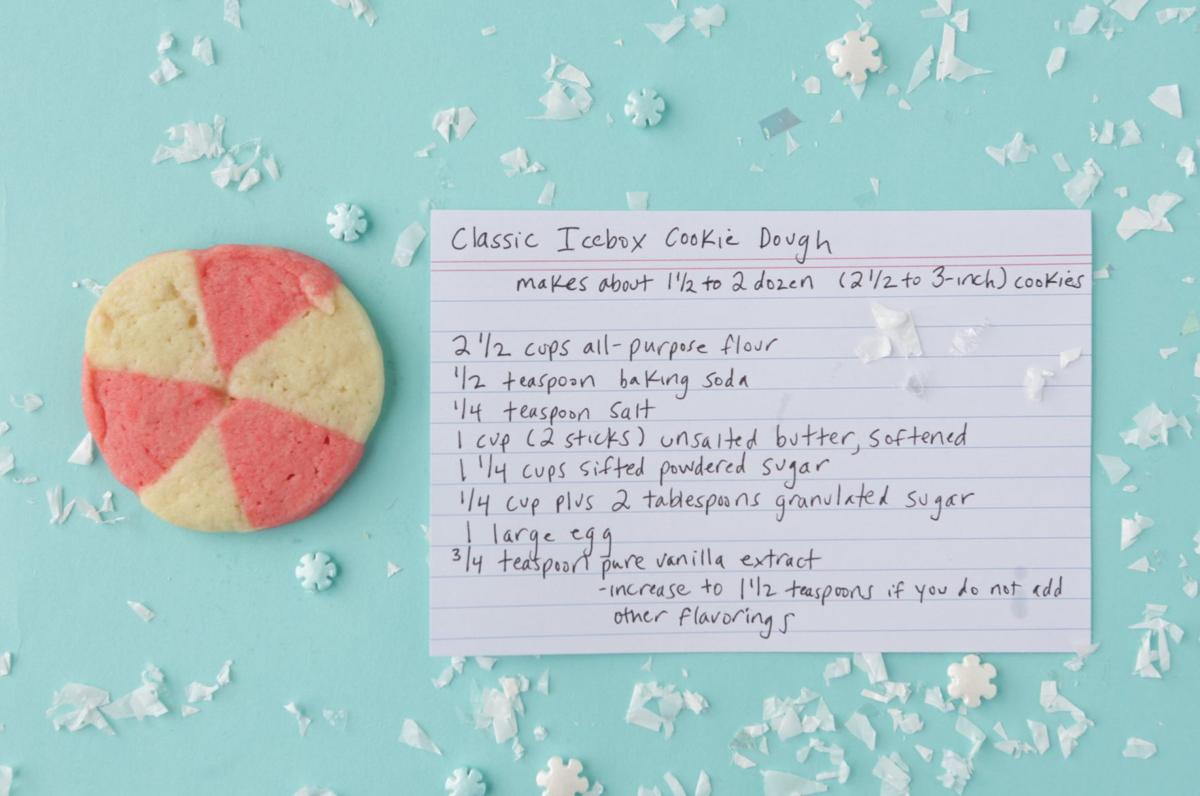 Classic Icebox Cookie Dough
makes about 1 1/2 to 2 dozen (2 1/2 to 3-inch) cookies
2 1/2 cups all-purpose flour
1/2 teaspoon baking soda
1/4 teaspoon salt
1 cup (2 sticks) unsalted butter, softened
1 1/4 cups sifted powdered sugar
1/4 cup plus 2 tablespoons granulated sugar
1 large egg
3/4 teaspoon pure vanilla extract
-increase to 1 1/2 teaspoons if you do not add
other flavorings